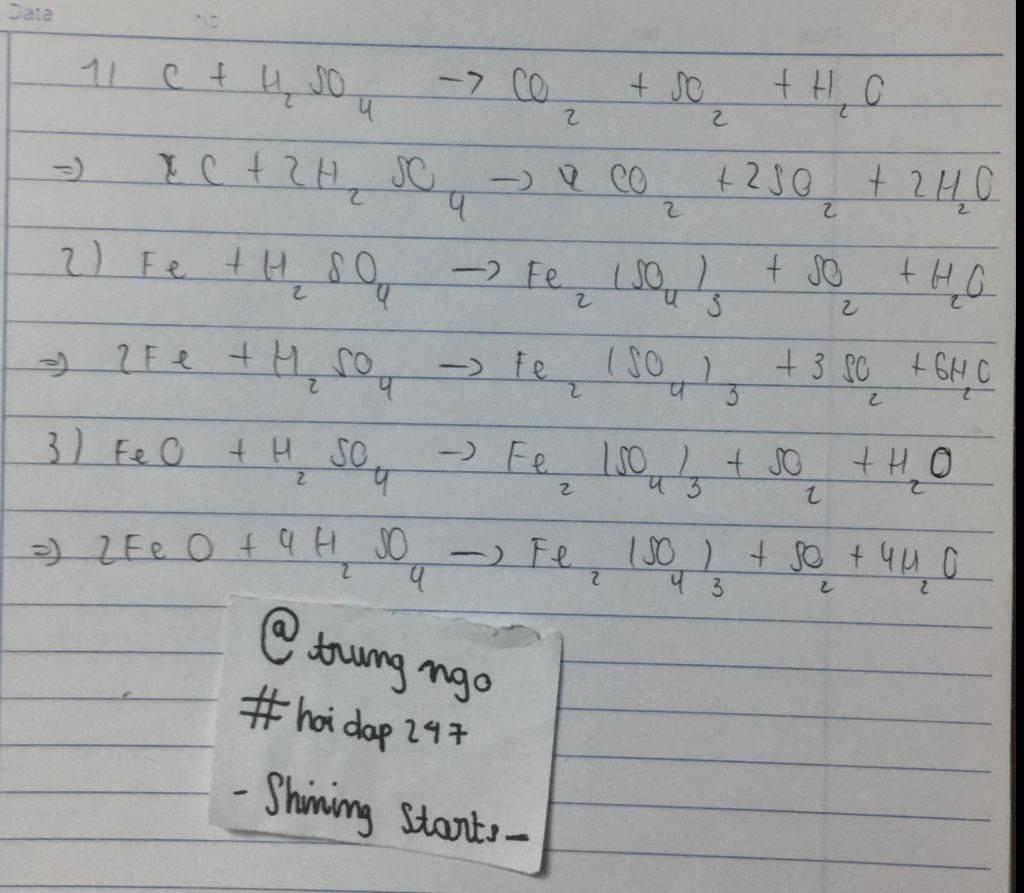 Date No
1) C + H₂SO₄ -> CO₂ + SO₂ + H₂O
=> C + 2H₂SO₄ -> CO₂ + 2SO₂ + 2H₂O
2) Fe + H₂SO₄ -> Fe₂(SO₄)₃ + SO₂ + H₂O
=> 2Fe + H₂SO₄ -> Fe₂(SO₄)₃ + 3SO₂ + 6H₂O
3) FeO + H₂SO₄ -> Fe₂(SO₄)₃ + SO₂ + H₂O
=> 2FeO + 4H₂SO₄ -> Fe₂(SO₄)₃ + SO₂ + 4H₂O
@trung ngo
#hoi dap 247
- Shining Starts -